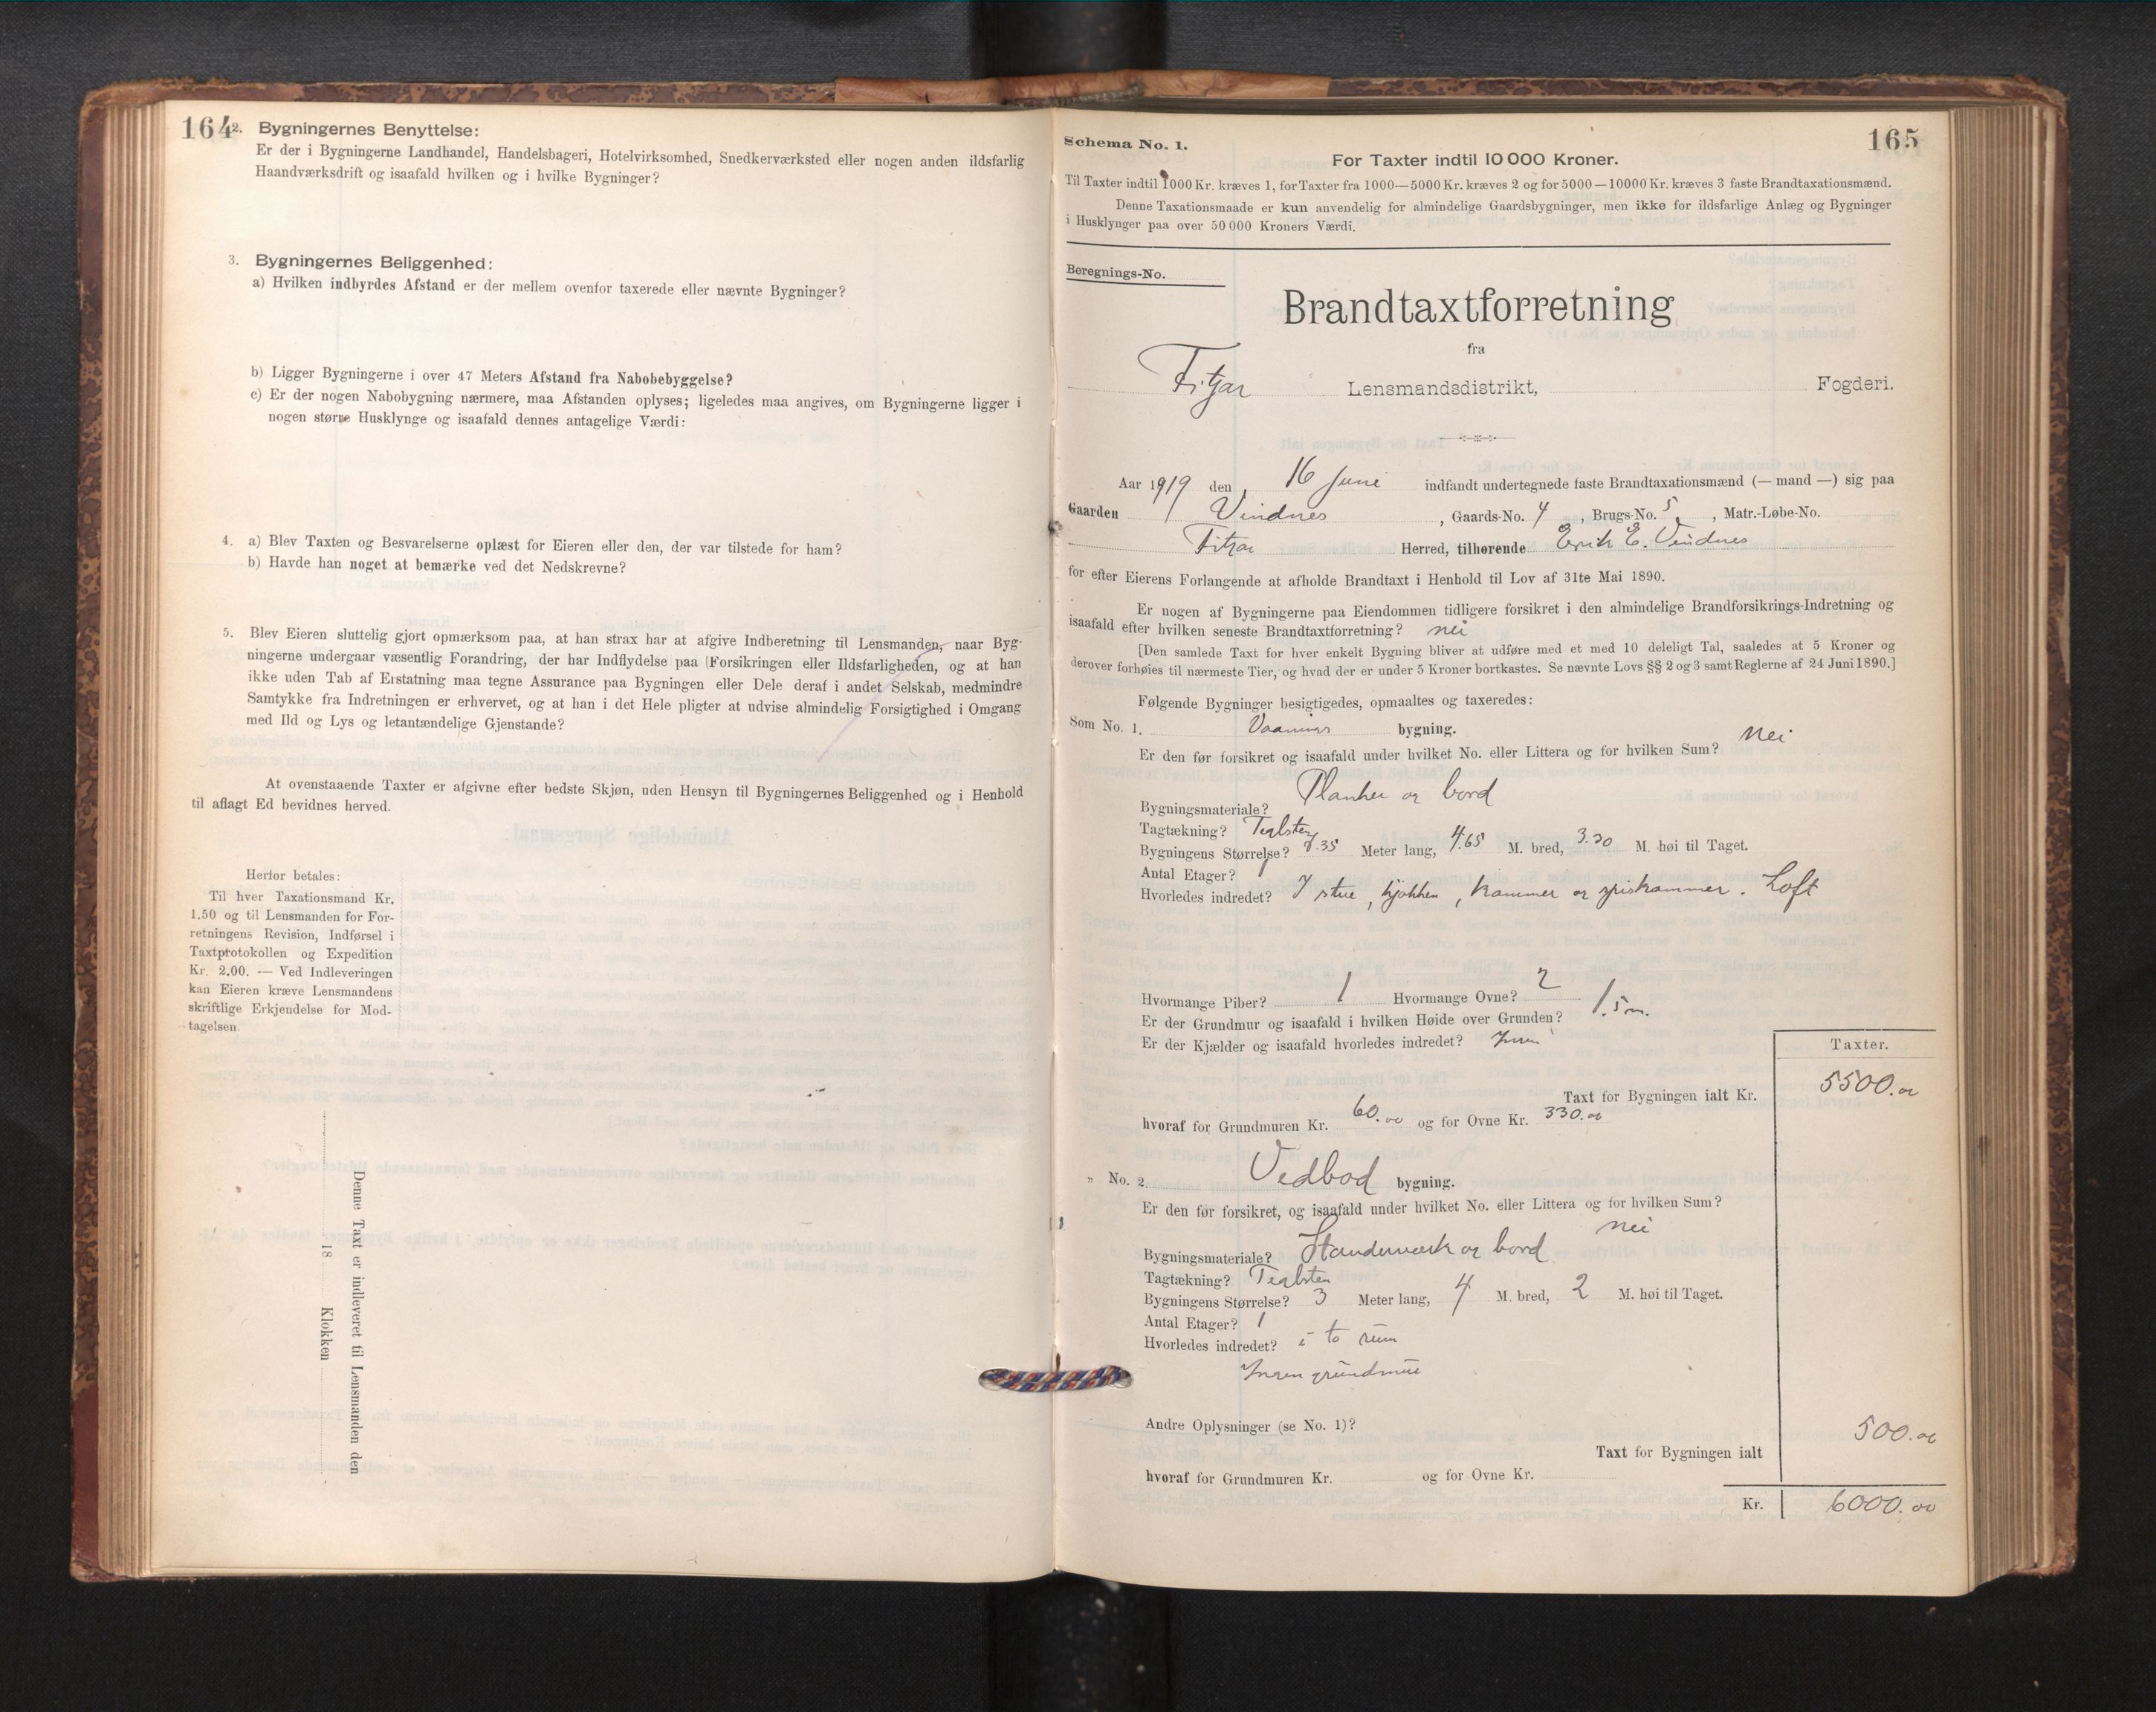 164
2. Bygningernes Benyttelse:
Er der i Bygningerne Landhandel, Handelsbageri, Hotelvirksomhed, Snedkerværksted eller nogen anden ildsfarlig
Haandværksdrift og isaafald hvilken og i hvilke Bygninger?
3. Bygningernes Beliggenhed:
a) Hvilken indbyrdes Afstand er der mellem ovenfor taxerede eller nævnte Bygninger?
b) Ligger Bygningerne i over 47 Meters Afstand fra Nabobebyggelse?
c) Er der nogen Nabobygning nærmere, maa Afstanden oplyses; ligeledes maa angives, om Bygningerne ligger i
nogen større Husklynge og isaafald dennes antagelige Værdi:
4. a) Blev Taxten og Besvarelserne oplæst for Eieren eller den, der var tilstede for ham?
b) Havde han noget at bemærke ved det Nedskrevne?
5. Blev Eieren sluttelig gjort opmærksom paa, at han strax har at afgive Indberetning til Lensmanden, naar Byg-
ningerne undergaar væsentlig Forandring, der har Indflydelse paa Forsikringen eller Ildsfarligheden, og at han
ikke uden Tab af Erstatning maa tegne Assurance paa Bygningen eller Dele deraf i andet Selskab, medmindre
Samtykke fra Indretningen er erhvervet, og at han i det Hele pligter at udvise almindelig Forsigtighed i Omgang
med Ild og Lys og letantændelige Gjenstande?
At ovenstaaende Taxter er afgivne efter bedste Skjøn, uden Hensyn til Bygningernes Beliggenhed og i Henhold
til aflagt Ed bevidnes herved.
Herfor betales:
Til hver Taxationsmand Kr.
1.50 og til Lensmanden for For-
retningens Revision, Indførsel i
Taxtprotokollen og Expedition
Kr. 2.00. — Ved Indleveringen
kan Eieren kræve Lensmandens
skriftlige Erkjendelse for Mod-
tagelsen.
Denne Taxt er indleveret til Lensmanden den
18 Klokken
165
Schema No. 1.
For Taxter indtil 10 000 Kroner.
Til Taxter indtil 1000 Kr. kræves 1, for Taxter fra 1000—5000 Kr. kræves 2 og for 5000—10000 Kr. kræves 3 faste Brandtaxationsmænd.
Denne Taxationsmaade er kun anvendelig for almindelige Gaardsbygninger, men ikke for ildsfarlige Anlæg og Bygninger
i Husklynger paa over 50 000 Kroners Værdi.
Beregnings-No.
Brandtaxtforretning
fra
Fitjar Lensmandsdistrikt, Fogderi.
Aar 1919 den 16 Juni indfandt undertegnede faste Brandtaxationsmænd (— mand —) sig paa
Gaarden Vindnes, Gaards-No. 4, Brugs-No. 5, Matr.-Løbe-No.
Fitjar Herred, tilhørende Erik E. Vindnes
for efter Eierens Forlangende at afholde Brandtaxt i Henhold til Lov af 31te Mai 1890.
Er nogen af Bygningerne paa Eiendommen tidligere forsikret i den almindelige Brandforsikrings-Indretning og
isaafald efter hvilken seneste Brandtaxtforretning? nei
[Den samlede Taxt for hver enkelt Bygning bliver at udføre med et med 10 deleligt Tal, saaledes at 5 Kroner og
derover forhøies til nærmeste Tier, og hvad der er under 5 Kroner bortkastes. Se nævnte Lovs §§ 2 og 3 samt Reglerne af 24 Juni 1890.]
Følgende Bygninger besigtigedes, opmaaltes og taxeredes:
Som No. 1. Vaanings bygning.
Er den før forsikret og isaafald under hvilket No. eller Littera og for hvilken Sum? nei
Bygningsmateriale? Planker og bord
Tagtækning? Teglsten
Bygningens Størrelse? 7.35 Meter lang, 4.65 M. bred, 3.30 M. høi til Taget.
Antal Etager? 1
Hvorledes indredet? I stue, kjøkken, kammer og spiskammer. Loft
Hvormange Piber? 1 Hvormange Ovne? 2
Er der Grundmur og isaafald i hvilken Høide over Grunden? 1.5 m.
Er der Kjælder og isaafald hvorledes indredet? Ingen
Taxter.
Taxt for Bygningen ialt Kr. 5500.00
hvoraf for Grundmuren Kr. 60.00 og for Ovne Kr. 330.00
„ No. 2. Vedbod bygning.
Er den før forsikret, og isaafald under hvilket No. eller Littera og for hvilken Sum? nei
Bygningsmateriale? Standerværk og bord
Tagtækning? Teglsten
Bygningens Størrelse? 3 Meter lang, 4 M. bred, 2 M. høi til Taget.
Antal Etager? 1
Hvorledes indredet? i to rum
Ingen grundmur
Andre Oplysninger (se No. 1)?
Taxt for Bygningen ialt 500.00
hvoraf for Grundmuren Kr. og for Ovne Kr.
Kr. 6000.00